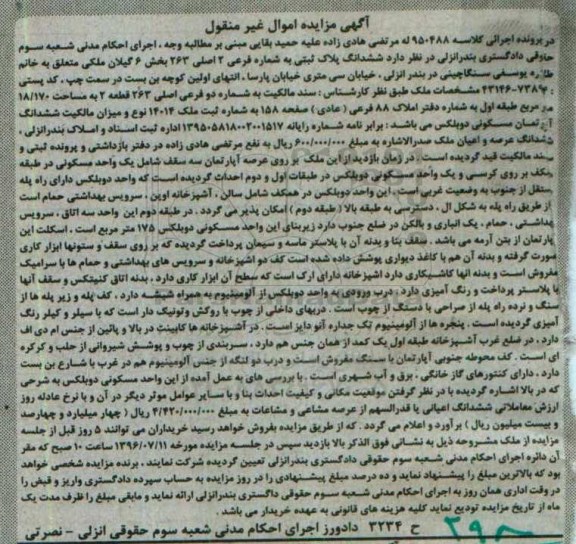 آگهی مزایده اموال غیر منقول
در پرونده اجرائی کلاسه ۹۵۰۴۸۸ له مرتضی هادی زاده علیه حمید بقایی مبنی بر مطالبه وجه ، اجرای احکام مدنی شعبه سوم
حقوقی دادگستری بندرانزلی در نظر دارد ششدانگ پلاک ثبتی به شماره فرعی ۲ اصلی ۲۶۳ بخش ۶ گیلان ملکی متعلق به خانم
یوسفی سنگاچینی در بندر انزلی ، خیابان سی متری خیابان پارسا ، انتهای اولین کوچه بن بست در سمت چپ ، کد پستی
۴۳۱۴۶-۷۳۸۹ مشخصات ملک طبق نظر کارشناس : سند مالکیت به شماره دو فرعی اصلی ۲۶۳ قطعه ۲ به مساحت ۱۸/۱۷۰
متر مربع طبقه اول به شماره دفتر املاک ۸۸ فرعی ( عادی ) صفحه ۱۵۸ به شماره ثبت ملک ۱۴۰۱۴ نوع و میزان مالکیت ششدانگ
آپارتمان مسکونی دوبلکس می باشد : برابر نامه شماره رایانه ۱۳۹۵۰۵۸۱۸۰۰۲۰۰۱۵۱۷ اداره ثبت اسناد و املاک بندرانزلی ،
ششدانگ عرصه و اعیان ملک صدرالاشاره به مبلغ ۶۰۰/۰۰۰/۰۰۰ ریال به نفع مرتضی هادی زاده در دفتر بازداشتی و پرونده ثبتی و
سند مالکیت قید گردیده است . در زمان بازدید از این ملک بر روی عرصه آپارتمان سه سقف شامل یک واحد مسکونی در طبقه
همکف بر روی کرسی و یک واحد مسکونی دوبلکس در طبقات اول و دوم احداث گردیده است که واحد دوبلکس دارای راه پله
مستقل از جنوب به وضعیت غربی است . این واحد دوبلکس در همکف شامل سالن ، آشپزخانه اوپن ، سرویس بهداشتی حمام است
از طریق راه پله به شکل ال ، دسترسی به طبقه بالا ( طبقه دوم ) امکان پذیر می گردد . در طبقه دوم این واحد سه اتاق ، سرویس
بهداشتی ، حمام ، یک انباری و بالکن در ضلع جنوب دارد زیربنای این واحد مسکونی دوبلکس ۱۷۵ متر مربع است . اسکلت این
آپارتمان از بتن آرمه می باشد . سقف بنا و بدنه آن با پلاستر ماسه و سیمان پرداخت گردیده که بر روی سقف و ستونها ابزار کاری
صورت گرفته و بدنه آن هم با کاغذ دیواری پوشش داده شده است کف دو آشپزخانه و سرویس های بهداشتی و حمام ها با سرامیک
مفروش است و بدنه آنها کاشیکاری دارد آشپزخانه دارای ارک است که سطح آن ابزار کاری دارد . بدنه اتاق کنیتکس و سقف آنها
با پلاستر پرداخت و رنگ آمیزی دارد . درب ورودی به واحد دوبلکس از آلومینیوم به همراه شیشه دارد . کف پله و زیر پله ها از
سنگ و نرده راه پله از صراحی با دستگ از چوب است . دربهای داخلی از چوب با روکش و تونیک دار است که با سیلر و کیلر رنگ
آمیزی گردیده است . پنجره ها از آلومینیوم تک جداره آنودایز است . در آشپزخانه ها کابینت در بالا و پائین از جنس ام دی اف
دارد . در ضلع غرب آشپزخانه طبقه اول یک کمد از همان جنس هم دارد . سربندی از چوب و پوشش شیروانی از حلب و کرکره
ای است . کف محوطه جنوبی آپارتمان با سنگ مفروش است و درب دو لنگه از جنس آلومینیوم هم در غرب با شارع بن بست
دارد . دارای کنتورهای گاز خانگی . برق و آب شهری است . با بررسی های به عمل آمده از این واحد مسکونی دوبلکس به شرحی
که در بالا اشاره گردیده با در نظر گرفتن موقعیت مکانی و کیفیت احداث بنا و با سایر عوامل موثر دیگر در آن و با نرخ عادله روز
ارزش معاملاتی ششدانگ اعیانی با قدرالسهم از عرصه مشاعی و مشاعات به مبلغ ۴/۴۲۰/۰۰۰/۰۰۰ ریال ( چهار میلیارد و چهارصد
و بیست میلیون ریال ) برآورد و اعلام می گردد . که از طریق مزایده بفروش خواهد رسید خریداران می توانند ۵ روز قبل از جلسه
مزایده از ملک مشروحه ذیل به نشانی فوق الذکر بالا بازدید سپس در جلسه مزایده مورخه ۱۳۹۶/۰۷/۱۱ ساعت ۱۰ صبح که مقر
آن دائره اجرای احکام مدنی شعبه سوم حقوقی دادگستری بندرانزلی تعیین گردیده شرکت نمایند . برنده مزایده شخصی خواهد
بود که بالاترین مبلغ را پیشنهاد نماید و ده درصد مبلغ پیشنهادی را در روز مزایده به حساب سپرده دادگستری واریز و قبض را
در وقت اداری همان روز به اجرای احکام مدنی شعبه سوم حقوقی دادگستری بندرانزلی ارائه نماید و مابقی مبلغ را ظرف مدت یک
ماه از تاریخ مزایده تودیع نماید کلیه هزینه های قانونی به عهده خریدار می باشد .
ح ۳۲۳۴ دادورز اجرای احکام مدنی شعبه سوم حقوقی انزلی - نصرتی